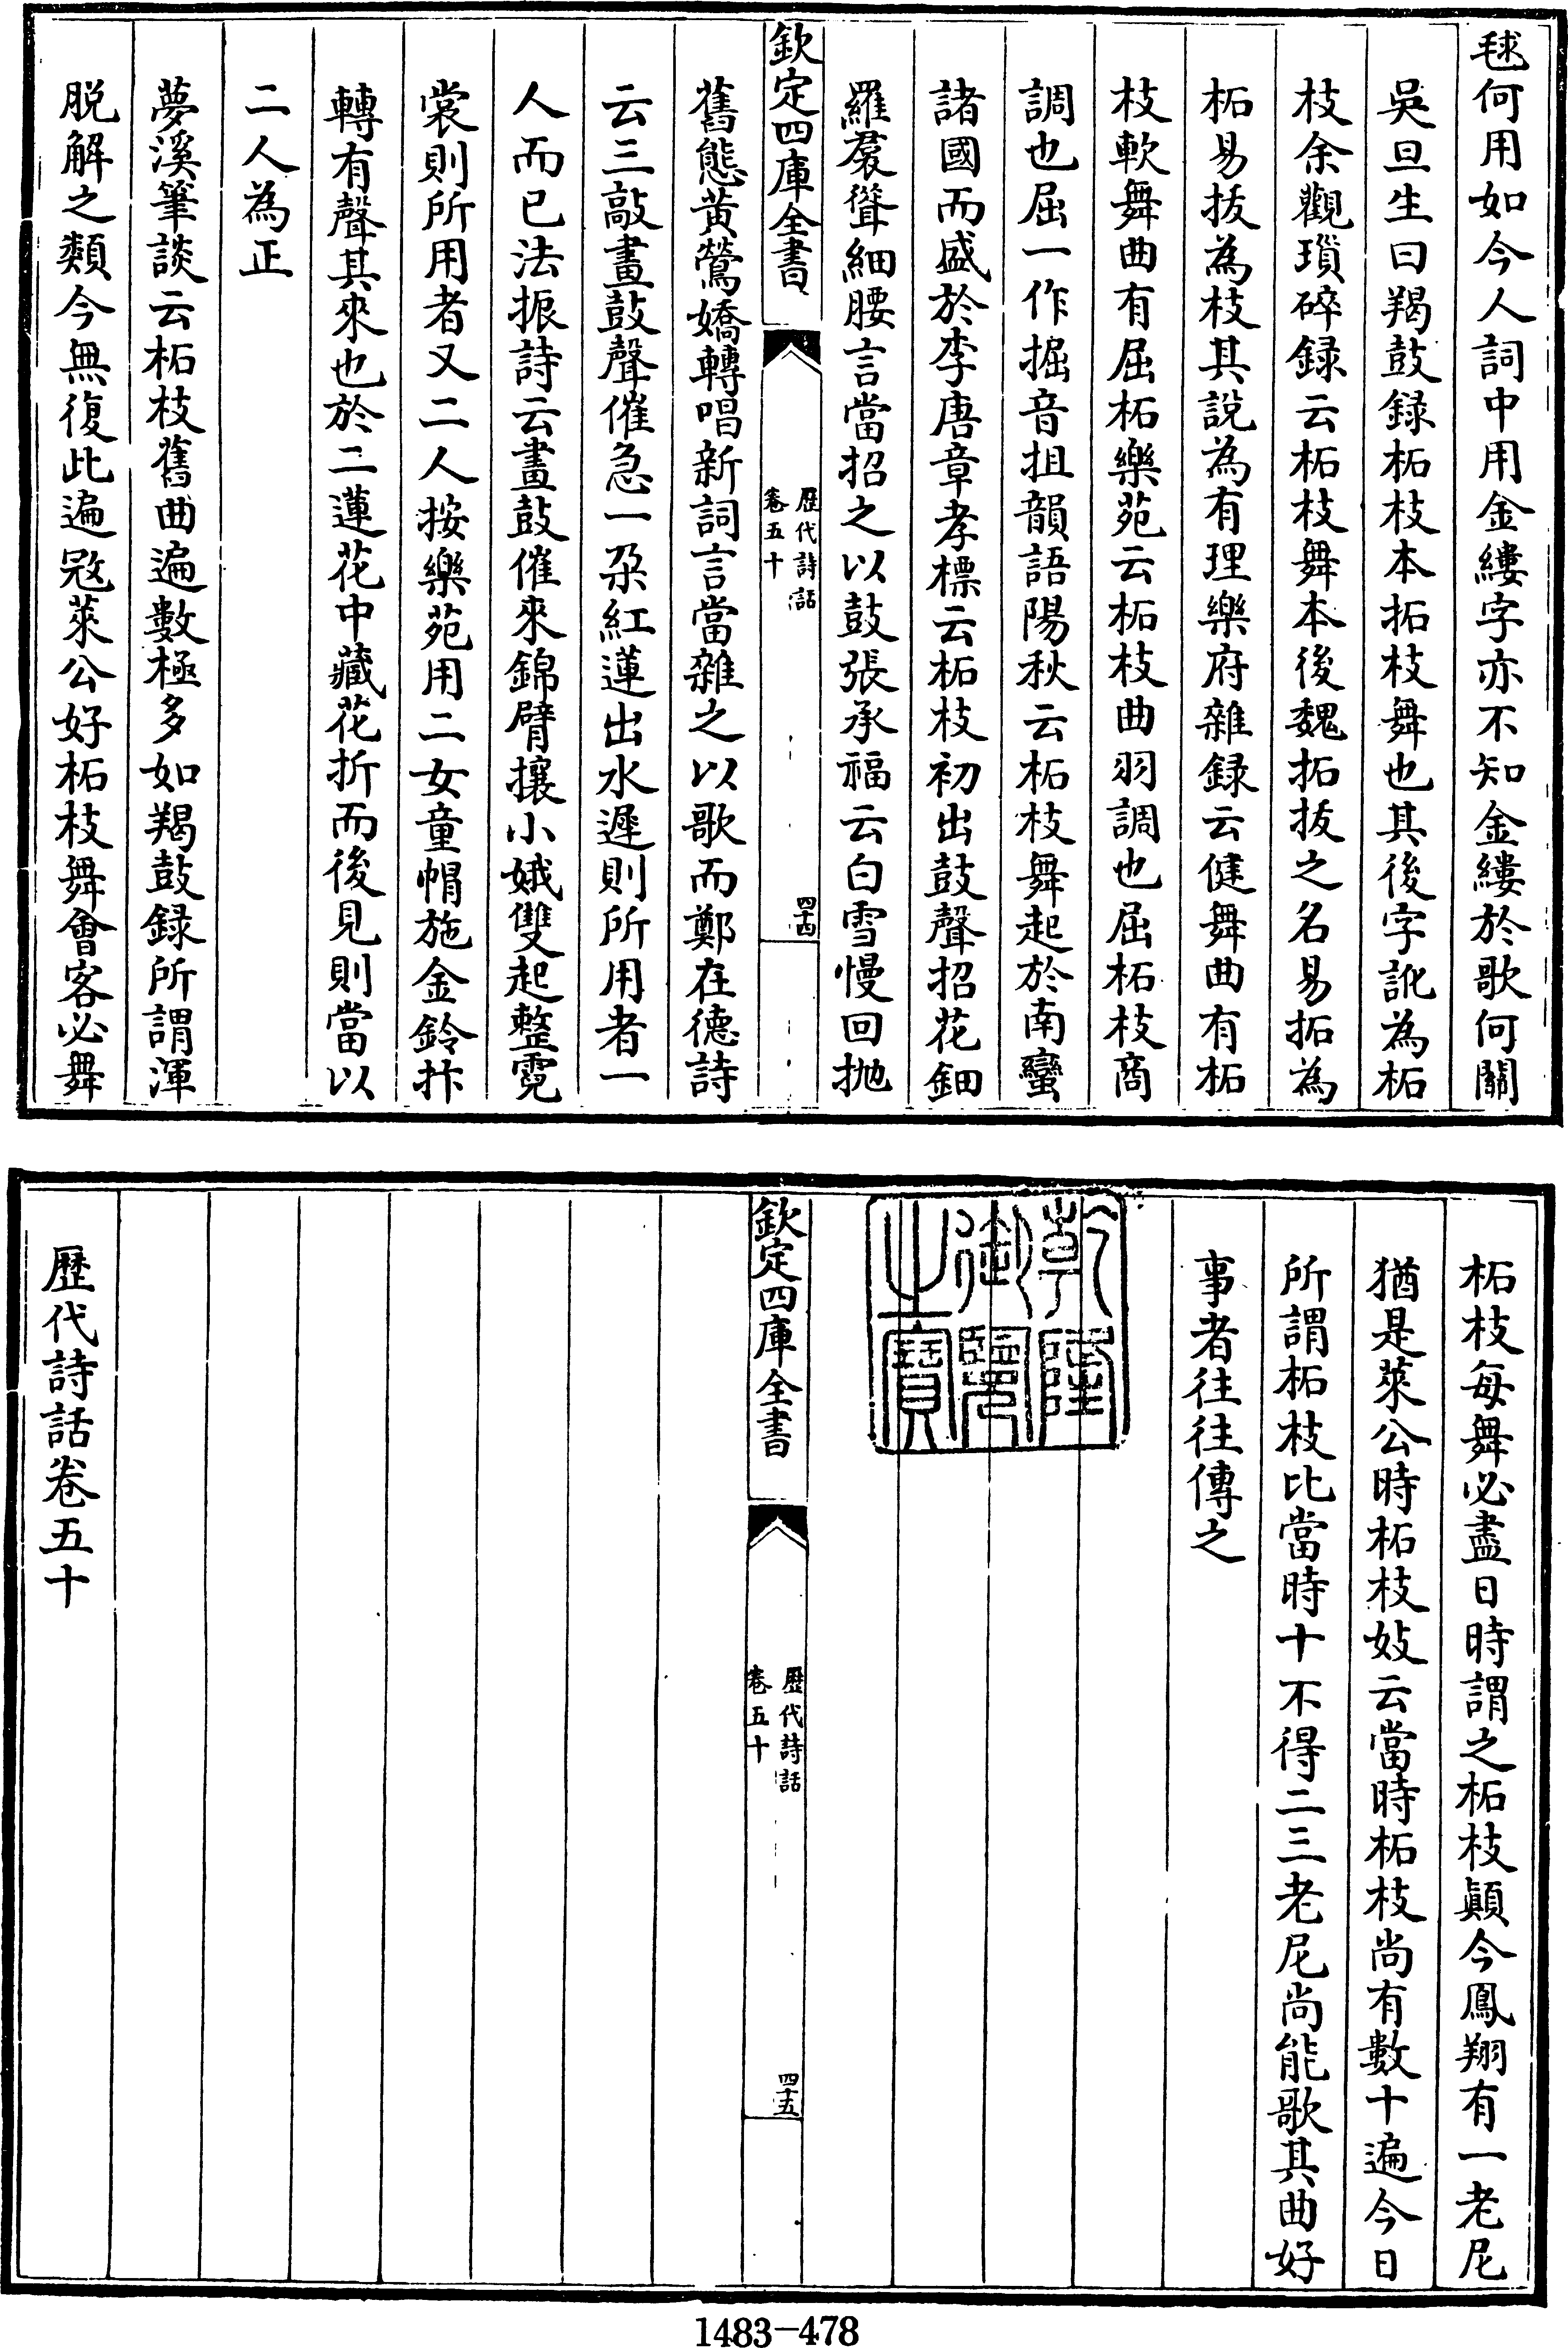 毬何用如今人詞中用金縷字亦不知金縷於歌何關
吳旦生曰羯鼓録柘枝本拓枝舞也其後字訛為柘
枝余觀瑣碎録云柘枝舞本後魏拓拔之名易拓為
柘易拔為枝其說為有理樂府雜録云健舞曲有柘
枝軟舞曲有屈柘樂苑云柘枝曲羽調也屈柘枝商
調也屈一作掘音抯韻語陽秋云柘枝舞起於南蠻
諸國而盛於李唐章孝標云柘枝初出鼓聲招花鈿
羅裠聳細腰言當招之以鼓張承福云白雪慢回抛
欽定四庫全書
歷代詩話
卷五十
四十四
舊態黃鶯嬌轉唱新詞言當雜之以歌而鄭在德詩
云三敲畫鼓聲催急一朶紅蓮出水遲則所用者一
人而已法振詩云畫鼓催來錦臂攘小娥雙起整霓
裳則所用者又二人按樂苑用二女童帽施金鈴抃
轉有聲其來也於二蓮花中藏花折而後見則當以
二人為正
夢溪筆談云柘枝舊曲遍數極多如羯鼓録所謂渾
脱解之類今無復此遍宼萊公好柘枝舞會客必舞
柘枝每舞必盡日時謂之柘枝顛今鳳翔有一老尼
猶是萊公時柘枝妓云當時柘枝尚有數十遍今日
所謂柘枝比當時十不得二三老尼尚能歌其曲好
事者往往傳之
乾隆
御覽
之寶
欽定四庫全書
歷代詩話
卷五十
四十五
歷代詩話卷五十
1483-478